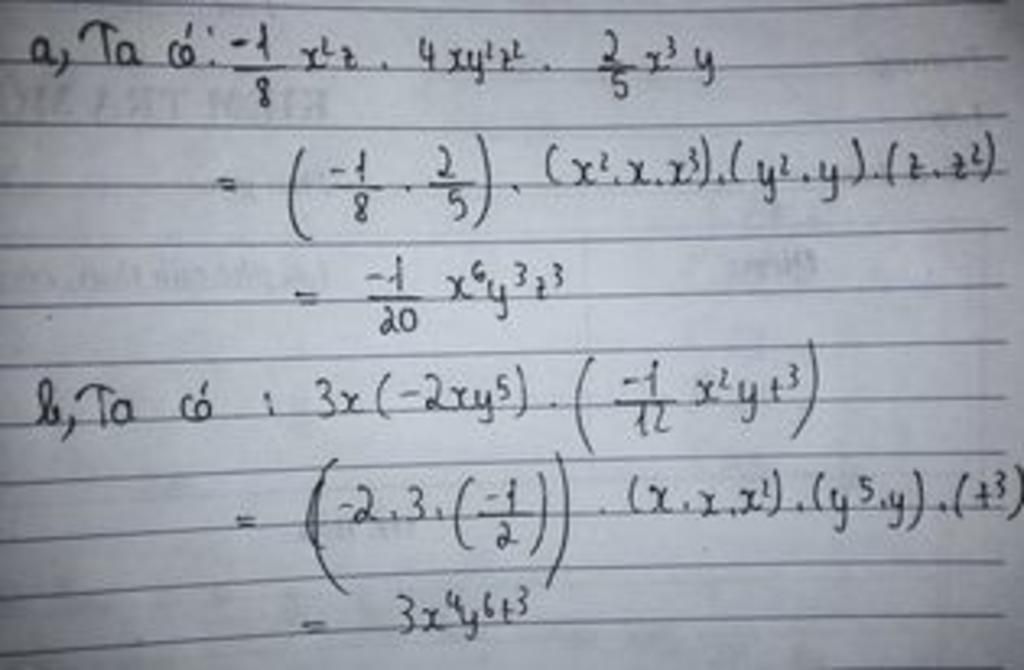 a, Ta có: \frac{-1}{8} x²z . 4xy²z² . \frac{2}{5} x³y
= (\frac{-1}{8} . \frac{2}{5}) . (x².x.x³).(y².y).(z.z²)
= \frac{-1}{20} x⁶y³z³
b, Ta có : 3x(-2xy⁵) . (\frac{-1}{12} x²yt³)
= (-2.3.(\frac{-1}{2})) . (x.x.x²).(y⁵.y).(t³)
= 3x⁴y⁶t³